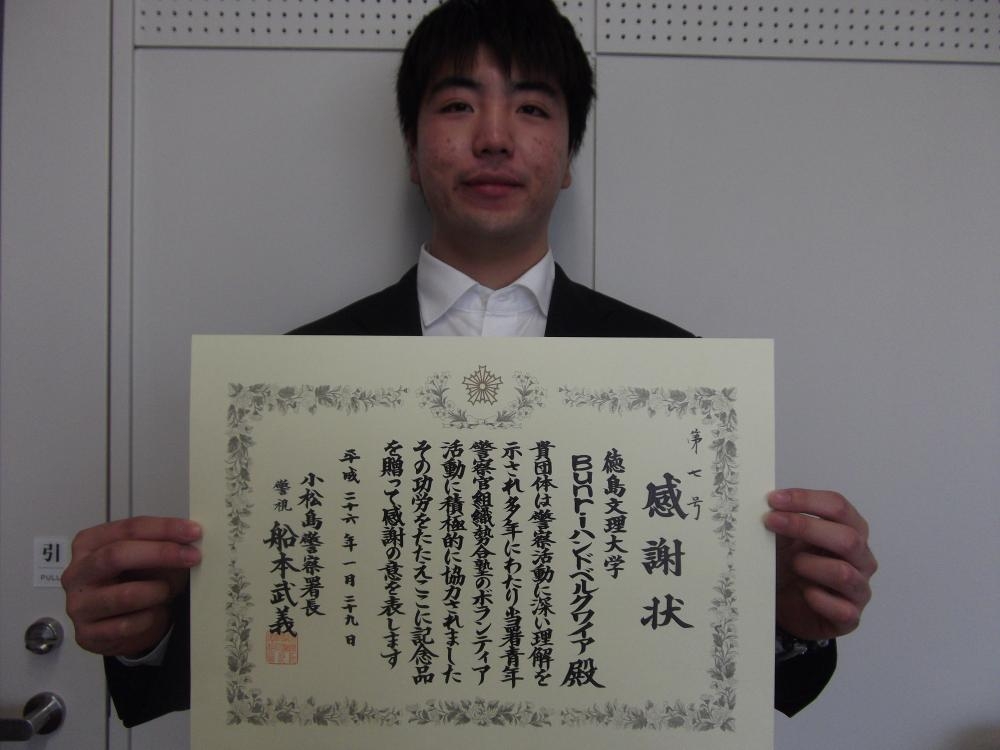 第七号
感謝状
徳島文理大学
Bunriハンドベルクワイア殿
貴団体は警察活動に深い理解を
示され多年にわたり当署青年
警察官組織勢合塾のボランティア
活動に積極的に協力されました
その功労をたたえここに記念品
を贈って感謝の意を表します
平成二十六年一日二十九日
小松島警察署長
警視 船本武義
引
PULL